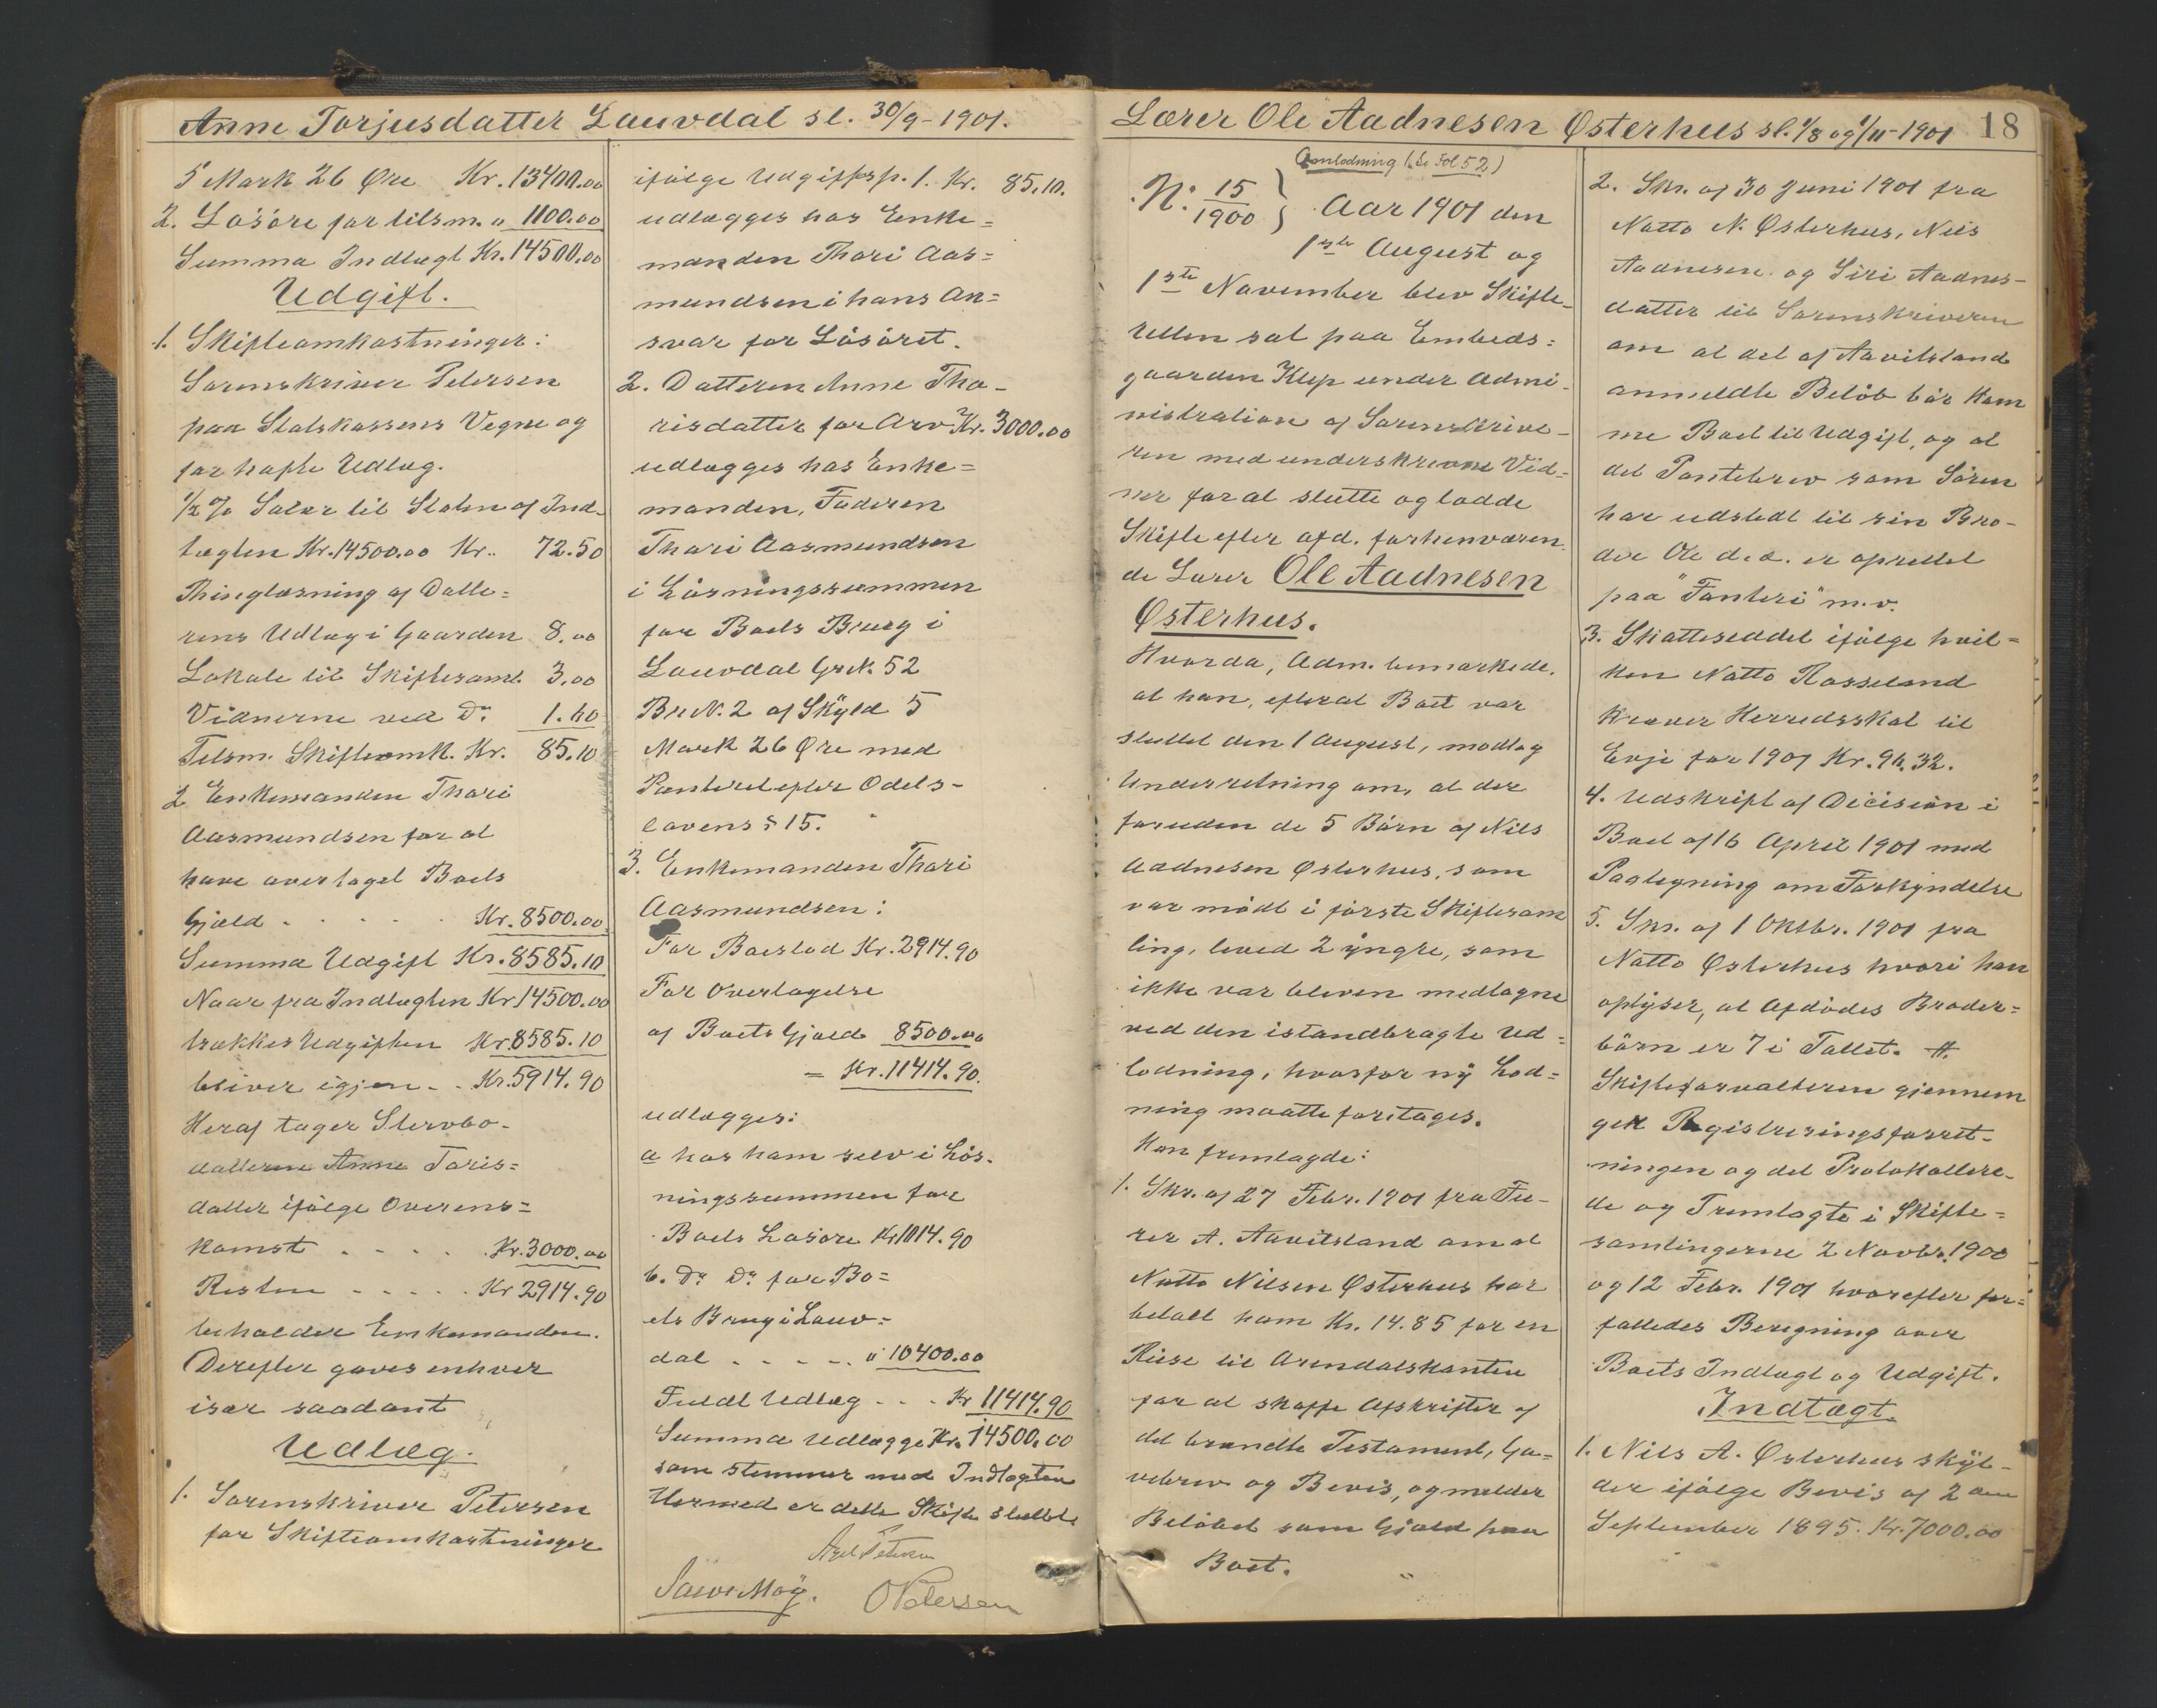 Anne Torjusdatter Lauvdal sl. 30/9-1901.
5 Mark 26 Øre Kr. 13400.00
2. Løsøre for tilsm. " 1100.00
Summa Indtægt Kr. 14500.00
Udgift.
1. Skifteomkostninger:
Sorenskriver Petersen
paa Statskassens Vegne og
for hafte Udlæg.
1/2 % Salær til Staten af Ind-
tægten Kr. 14500.00 Kr. 72.50
Thinglæsning af Datte=
rens Udlæg i Gaarden 8.00
Lokale til Skiftesaml. 3.00
Vidnerne ved Do 1.60
Tilsm. Skifteomk. Kr. 85.10
2 Enkemanden Thori
Aasmundsen for at
have overtaget Boets
Gjæld . . . . . Kr. 8500.00
Summa Udgift Kr. 8585.10
Naar fra Indtægten Kr 14500.00
trækkes Udgiften Kr 8585.10
bliver igjen . . Kr. 5914.90
Heraf tager Stervbo-
datteren Anne Toris=
datter ifølge Overens=
komst . . . . . Kr. 3000.00
Resten . . . . . Kr 2914.90
beholder Enkemanden.
Derefter gaves enhver
især saadant
Udlæg.
1. Sorenskriver Petersen
for Skifteomkostninger
ifølge Udgiftsp. 1. Kr. 85.10.
udlægges hos Enke=
manden Thori Aas=
mundsen i hans An=
svar for Løsøret.
2. Datteren Anne Tho-
risdatter for Arv Kr. 3000.00
udlægges hos Enke=
manden, Faderen
Thori Aasmundsen
i Løsningssummen
for Boets Brug i
Lauvdal Gr.N. 52
Br.N. 2 af Skyld 5
Mark 26 Øre med
Panteret efter Odels-
lovens § 15.
3. Enkemanden Thori
Aasmundsen:
For Boeslod Kr. 2914.90
For Overtagelse
af Boets Gjæld 8500.00
= Kr. 11414.90.
udlægges:
a hos ham selv i Løs-
ningssummen for
Boets Løsøre Kr 1014.90
b. Do Do for Bo=
ets Brug i Lauv=
dal . . . . . " 10400.00
Fuldt Udlæg . . . Kr 11414.90
Summa Udlægge Kr. 14500.00
som stemmer med Indtægten
Hermed er dette Skifte sluttet
Axel Petersen
O Petersen
Lærer Ole Aadnesen Østerhus sl. 1/8 og 1/11-1901 18
(Se Fol 52)
N: 15/1900 } Aar 1901 den
1ste August og
1ste November blev Skifte-
retten sat paa Embeds=
gaarden Klep under Admi-
nistration af Sorenskrive-
ren med underskrevne Vid=
ner for at slutte og lodde
Skifte efter afd. forhenværen-
de Lærer Ole Aadnesen
Østerhus.
Hvorda, Adm. bemærkede.
at han, efterat Boet var
sluttet den 1 August, modtog
Underretning om, at der
foruden de 5 Børn af Nils
Aadnesen Østerhus, som
var mødt i første Skiftesam
ling, leved 2 yngre, som
ikke var bleven medtagne
ved den istandbragte Ud=
lodning, hvorfor ny Lod=
ning maatte foretages.
Han fremlagde:
1. Skr. af 27 Febr. 1901 fra Fu-
rer A. Aavitsland om at
Natto Nilsen Østerhus har
betalt ham Kr. 14.85 for en
Reise til Arendalskanten
for at skaffe Afskrifter af
det brændte Testament, Ga=
vebrev og Bevis, og melder
Beløbet som Gjæld paa
Boet.
2. Skr. af 30 Juni 1901 fra
Natto N. Østerhus, Nils
Aadnesen og Siri Aadnes-
datter til Sorenskriveren
om at det af Aavitsland
anmeldte Beløb bør kom
me Boet til Udgift, og at
det Pantebrev som Søren
har udstedt til sin Bro-
der Ole d.e. er oprettet
paa "Fanteri" m.v.
3. Skatteseddel ifølge hvil=
ken Natto Rosseland
kræver Herredsskat til
Evje for 1901 Kr. 96.32.
4. Udskrift af Decision i
Boet af 16 April 1901 med
Paategning om Forkyndelse
5. Skr. af 1 Oktbr. 1901 fra
Natto Østerhus hvori han
oplyser, at Afdødes Broder=
børn er 7 i Tallet.
Skifteforvalteren gjennem
gik Registreringsforret-
ningen og det Protokollere-
de og Fremlagte i Skifte=
samlingerne 2 Novbr. 1900
og 12 Febr. 1901 hvorefter for=
fattedes Beregning over
Boets Indtægt og Udgift.
Indtægt.
1. Nils A. Østerhus skyl-
der ifølge Bevis af 2den
September 1895. Kr. 7000.00